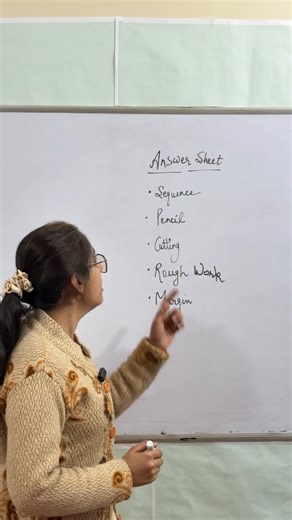 Answer Sheet
• Sequence
• Pencil
• Cutting
• Rough Work
• Margin